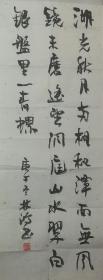 湖光秋月两相和潭面無風
鏡未磨遥望洞庭山水翠白
银盤里一青螺
庚子 書